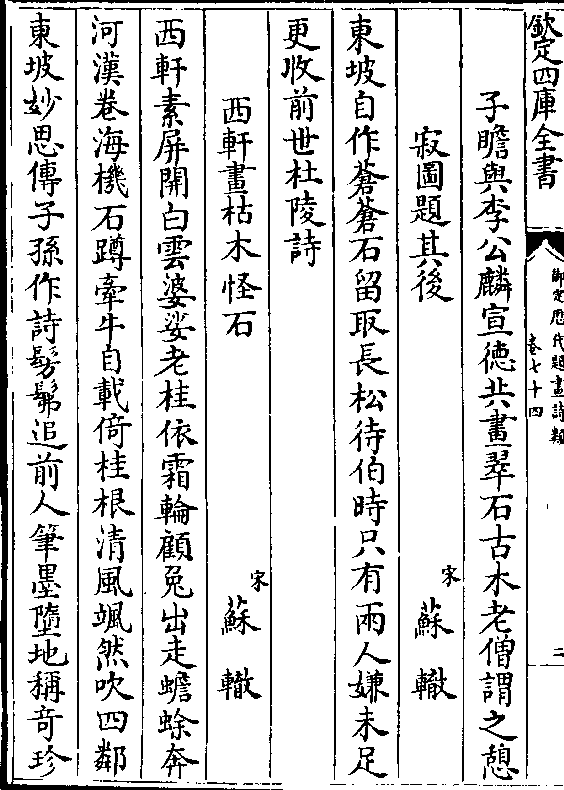 欽定四庫全書
御定歷代題畫詩類
卷七十四
二
子瞻與李公麟宣徳共畫翠石古木老僧謂之憩
寂圖題其後
宋 蘇轍
東坡自作蒼蒼石留取長松待伯時只有兩人嫌未足
更收前世杜陵詩
西軒畫枯木怪石
宋 蘇轍
西軒素屏開白雲婆娑老桂依霜輪顧兔出走蟾蜍奔
河漢卷海機石蹲牽牛自載倚桂根清風颯然吹四鄰
東坡妙思傳子孫作詩髣髴追前人筆墨墮地稱竒珍